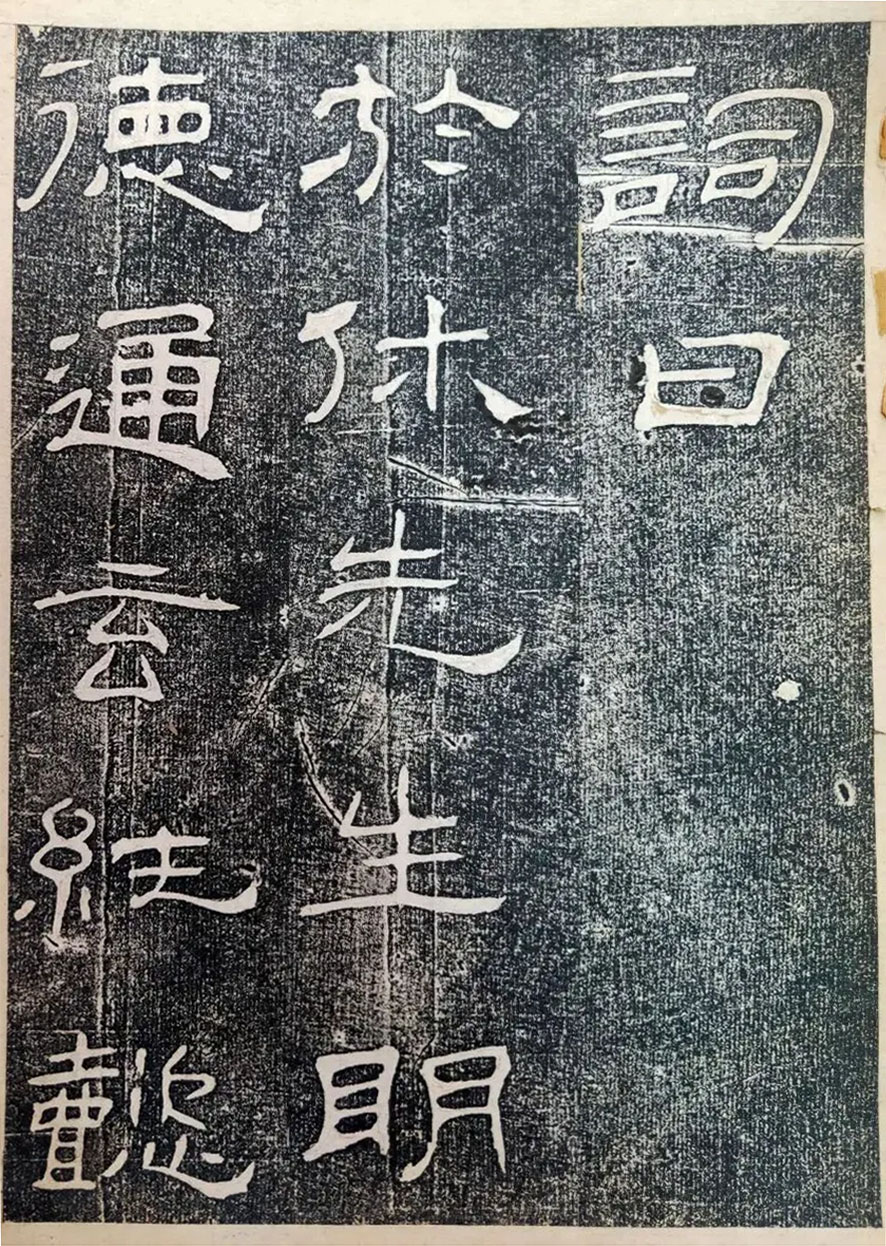 詞曰
於休先生明
德通玄純懿